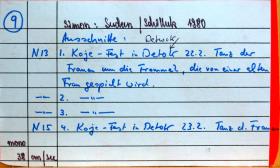 9 Simon: Sudan / Schilluk 1980
Ausschnitte: Detwoky
N13 1. Koje-Fest in Detokr 22.2. Tanz der
Frauen um die Trommel, die von einer alten
Frau gespielt wird.
2. —"—
3. —"—
N15 4. Koje-Fest in Detokr 23.2. Tanz d. Frauen
mono
38 cm/sec